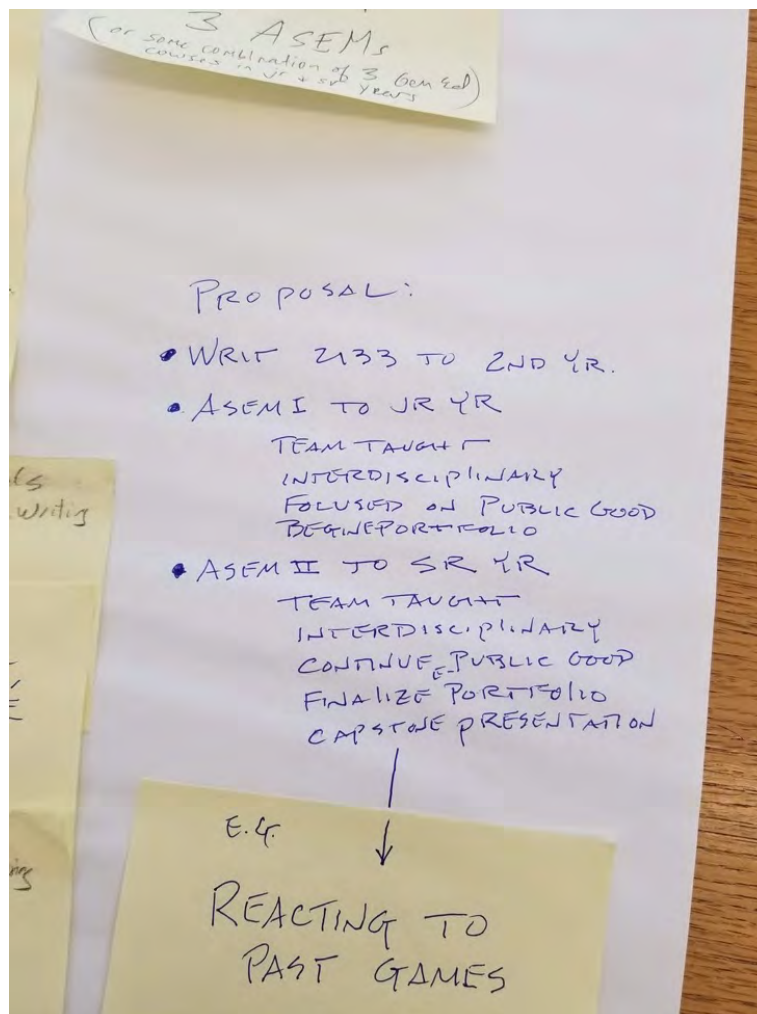 3 ASEMs
(or some combination of 3 Gen Ed)
courses in jr + sr years
PROPOSAL:
• WRIT 2133 TO 2ND YR.
• ASEM I TO JR YR
TEAM TAUGHT
INTERDISCIPLINARY
FOCUSED ON PUBLIC GOOD
BEGIN EPORTFOLIO
• ASEM II TO SR YR
TEAM TAUGHT
INTERDISCIPLINARY
CONTINUE PUBLIC GOOD
FINALIZE E-PORTFOLIO
CAPSTONE PRESENTATION
E.G.
REACTING TO
PAST GAMES
Writing